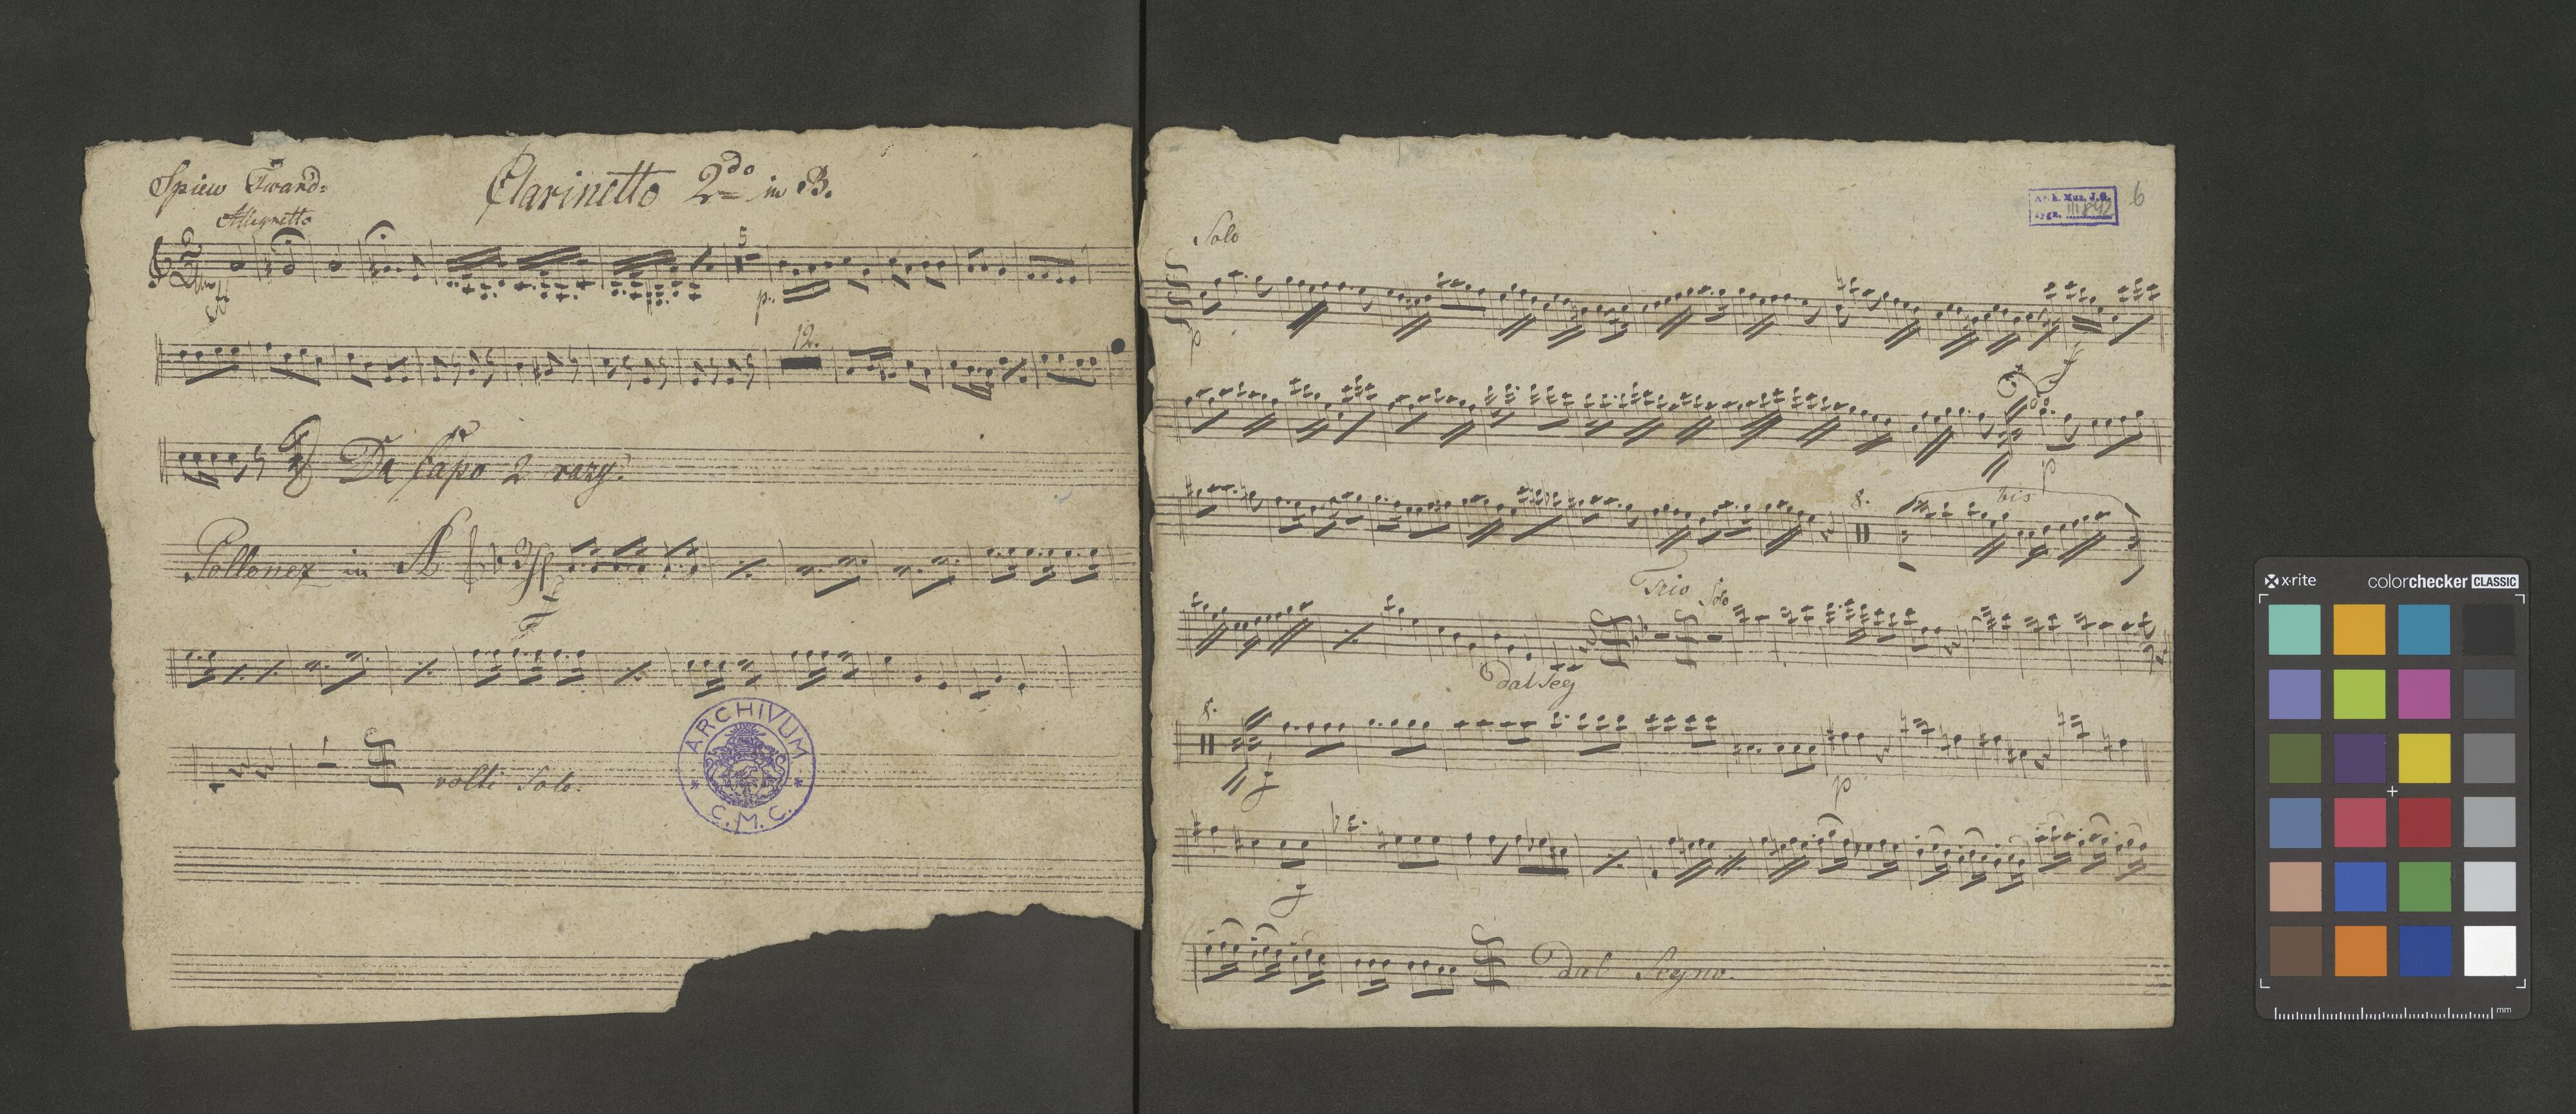 Spiew Tward:
Clarinetto 2do in B.
Allegretto
ff
5
p.
12.
Da Capo 2 razy.
Pollonez in A
volti Solo.
ARCHIVUM
* C.M.C. *
6
Solo
p
p
8.
bis
Trio Solo
dal Seg
8.
f
p
f
dal Segno.
x-rite
colorchecker CLASSIC
mm